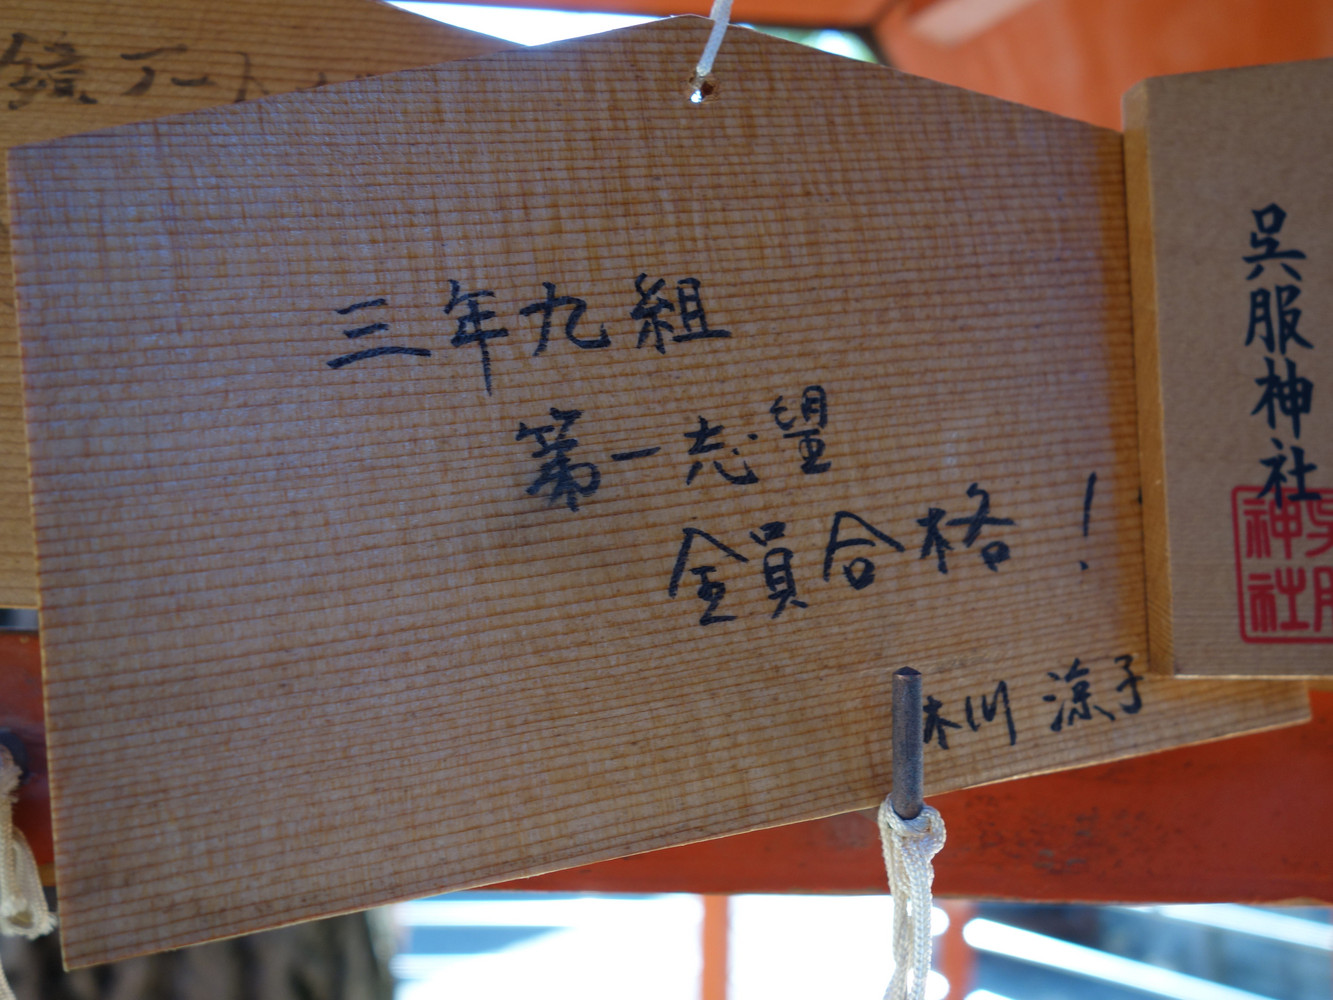 三年九組
第一志望
全員合格!
川 涼子
呉服神社
呉服
神社